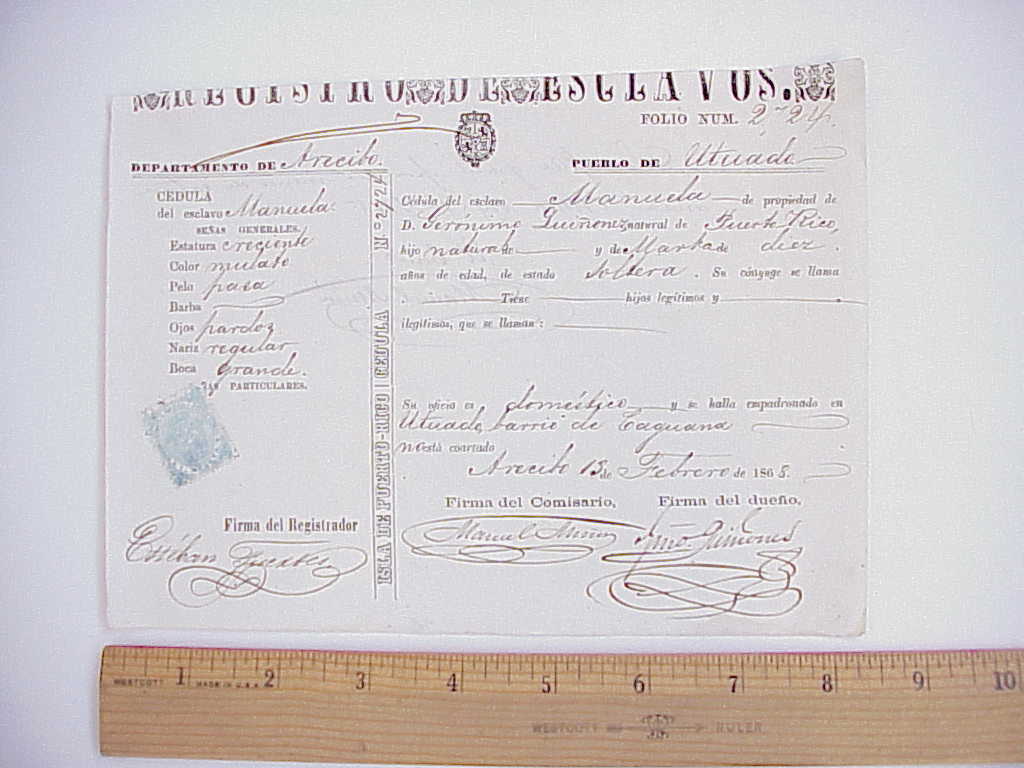 REGISTRO DE ESCLAVOS.
FOLIO NUM. 2,724.
DEPARTAMENTO DE Arecibo.
PUEBLO DE Utuado
CEDULA
del esclavo Manuela.
SEÑAS GENERALES.
Estatura creciente
Color mulato
Pelo pasa
Barba
Ojos pardoz
Nariz regular
Boca grande.
PARTICULARES.
Firma del Registrador
Estéban
ISLA DE PUERTO-RICO | CEDULA No 2724
Cédula del esclavo Manuela de propiedad de
D. Gerónimo Quiñonez natural de Puerto Rico,
hijo natural de y de Marta de diez
años de edad, de estado soltera. Su cónyuge se llama
Tiene hijos legítimos y
ilegítimos, que se llaman:
Su oficio es doméstico y se halla empadronado en
Utuado, barrio de Caguana
no está coartado
Arecibo 15 de Febrero de 1868.
Firma del Comisario,
Manuel
Firma del dueño,
WESTCOTT MADE IN U.S.A.
1 2 3 4 5 6 7 8 9 10
WESTCOTT RULER